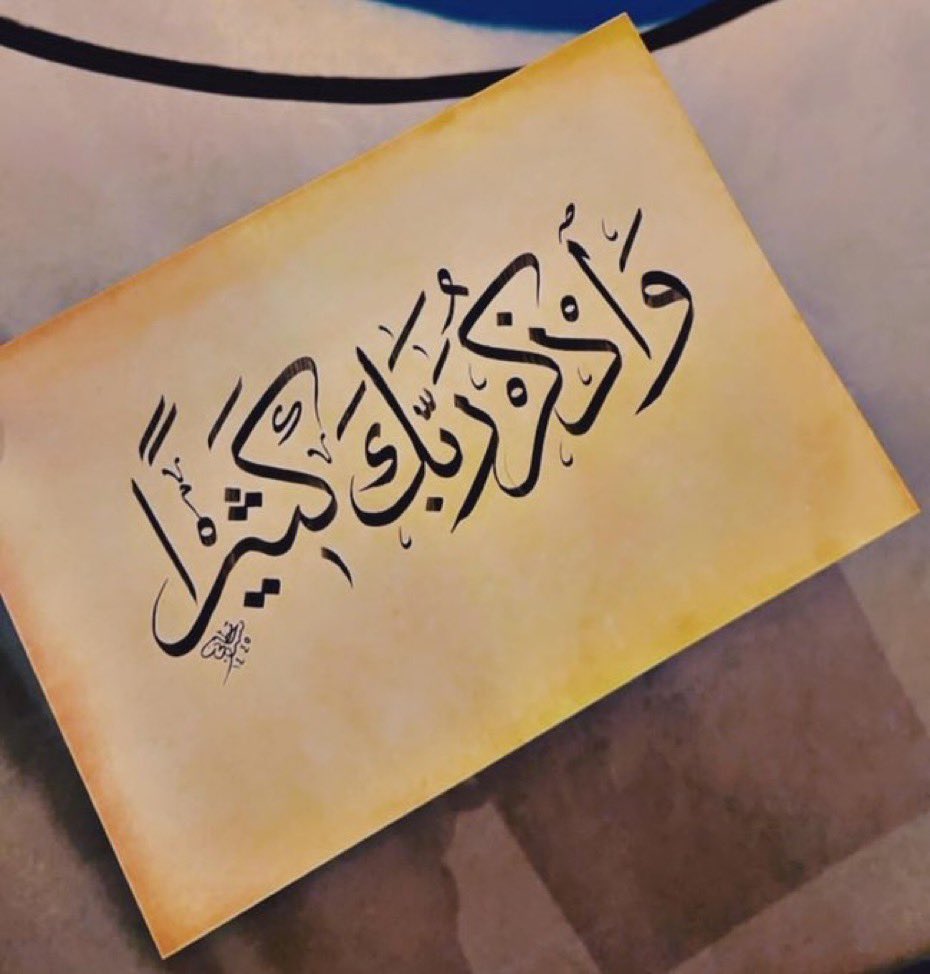 وَأُذْكُرْ رَبَّكَ كَثِيْرًا